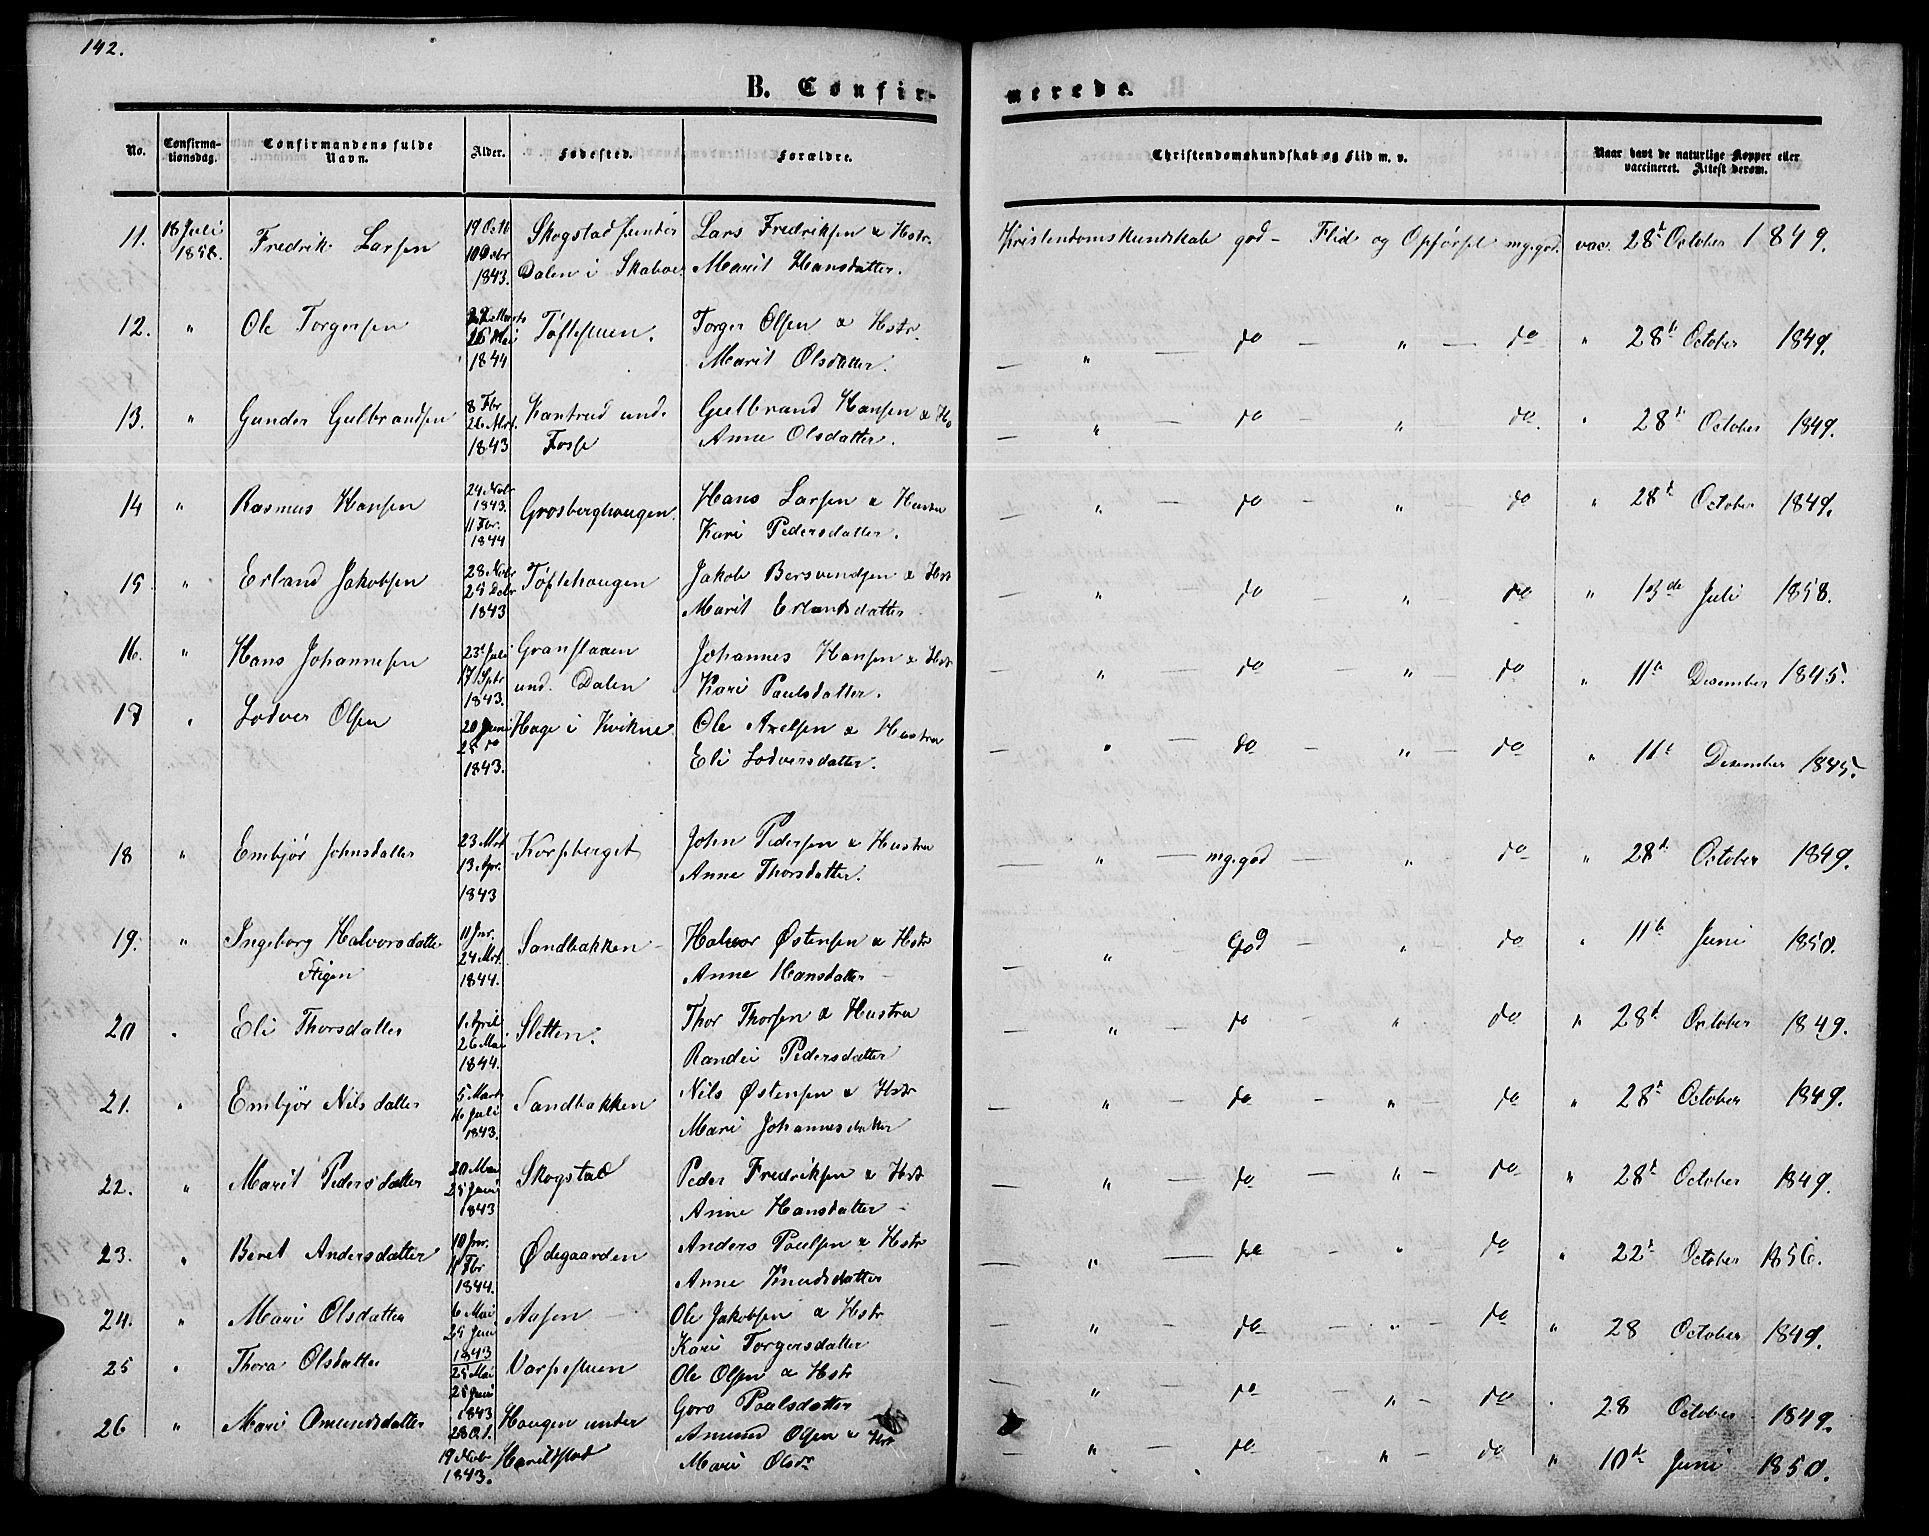 142.
B. Confir-
merede.
No.
Confirma-
tionsdag.
Confirmandens fulde
Navn.
Alder.
Fødested.
Forældre.
Christendomskundskab og Flid m. v.
Naar havt de naturlige Kopper eller
vaccineret. Attest derom.
11. 18 Juli 1858. Fredrik Larsen 19 Octb 10 Dcbr 1843. Skogstad under Dalen i Skaboe. Lars Fredriksen & Hstr. Marit Hansdatter. Kristendomskundskab god - Flid og Opførsel mg. god. vac. 28d October 1849.
12. " Ole Torgersen 26 Mai 1844 Tøftestuen. Torger Olsen & Hstr. Marit Olsdatter. — " — do — " — do " 28d October 1849.
13. " Gunder Gulbrandsen 8 Fbr 26 Mrt. 1843 Kantrud und. Fosse Gulbrand Hansen & Ho Anne Olsdatter. — " — do — " do " 28d October 1849.
14 " Rasmus Hansen 24 Nvbr 1843. 11 Fbr. 1844 Grosberghougen. Hans Larsen & Hustru Kari Pedersdatter. — " do — " do " 28d October 1849.
15 " Erland Jakobsen 28 Nvbr 25 Dcbr 1843 Tøftehougen Jakob Bersvendsen & Hst Marit Erlandsdatter — " do — " — do " 13de Juli 1858.
16. " Hans Johannesen 23d Juli 17 Sptr 1843. Granslaaen und. Dalen Johannes Hansen & Hst Kari Paulsdatter. — " — do — " — do " 11te Desember 1845.
17 " Lodver Olsen 20 Juni 25 do 1843. Hage i Kvikne Ole Axelsen & Hustru Eli Lodversdatter. — " — do — " — do " 11te Desember 1845.
18 " Embjør Johnsdatter 23 Mrt 13 Apr. 1843 Korpberget John Pedersen & Hustru Anne Thorsdatter. — " — mg. god — " do " 28d October 1849.
19. " Ingeborg Halvorsdatter Stigen 11 Jnr. 24 Mrt. 1844. Sandbakken Halvor Østensen & Hstr Anne Hansdatter — — " God — " do " 11te Juni 1850.
20 " Eli Thorsdatter 1 April 26 Mai 1844. Sletten. Thor Thorsen & Hustru Randei Pedersdatter — " — do — " do " 28d October 1849.
21. " Embjør Nilsdatter 5 Marts 16 Juli 1843. Sandbakken Nils Østensen & Hstr Mari Johannesdatter — " — do — " — do " 28d October 1849.
22. " Marit Pedersdatter 20 Mai 25 Juni 1843 Skogstad Peder Fredriksen & Hst Anne Hansdatter — — " — do — " — do " 28d October 1849.
23. " Beret Andersdatter 10 Jnr. 11 Fbr 1844. Ødegaarden Anders Poulsen & Hstr Anne Knudsdatter — " — do — " do " 22d October 1856.
24. " Mari Olsdatter 6 Mai 25 Juni 1843 Aasen — Ole Jakobsen & Hstr Kari Torgersdatter — " — do — " — do " 28 October 1849.
25 " Thora Olsdatter 25 Mai 25 Juni 1843 Varpestuen Ole Olsen & Hstr Goro Poulsdatter — " — do — " — do " 28 October 1849.
26 " Mari Omundsdatter 28 Oct. 19 Nvbr 1843. Hougen under Harildstad Amund Olsen & Hst Mari Olsdr — " — do — " — do " 10de Juni 1850.